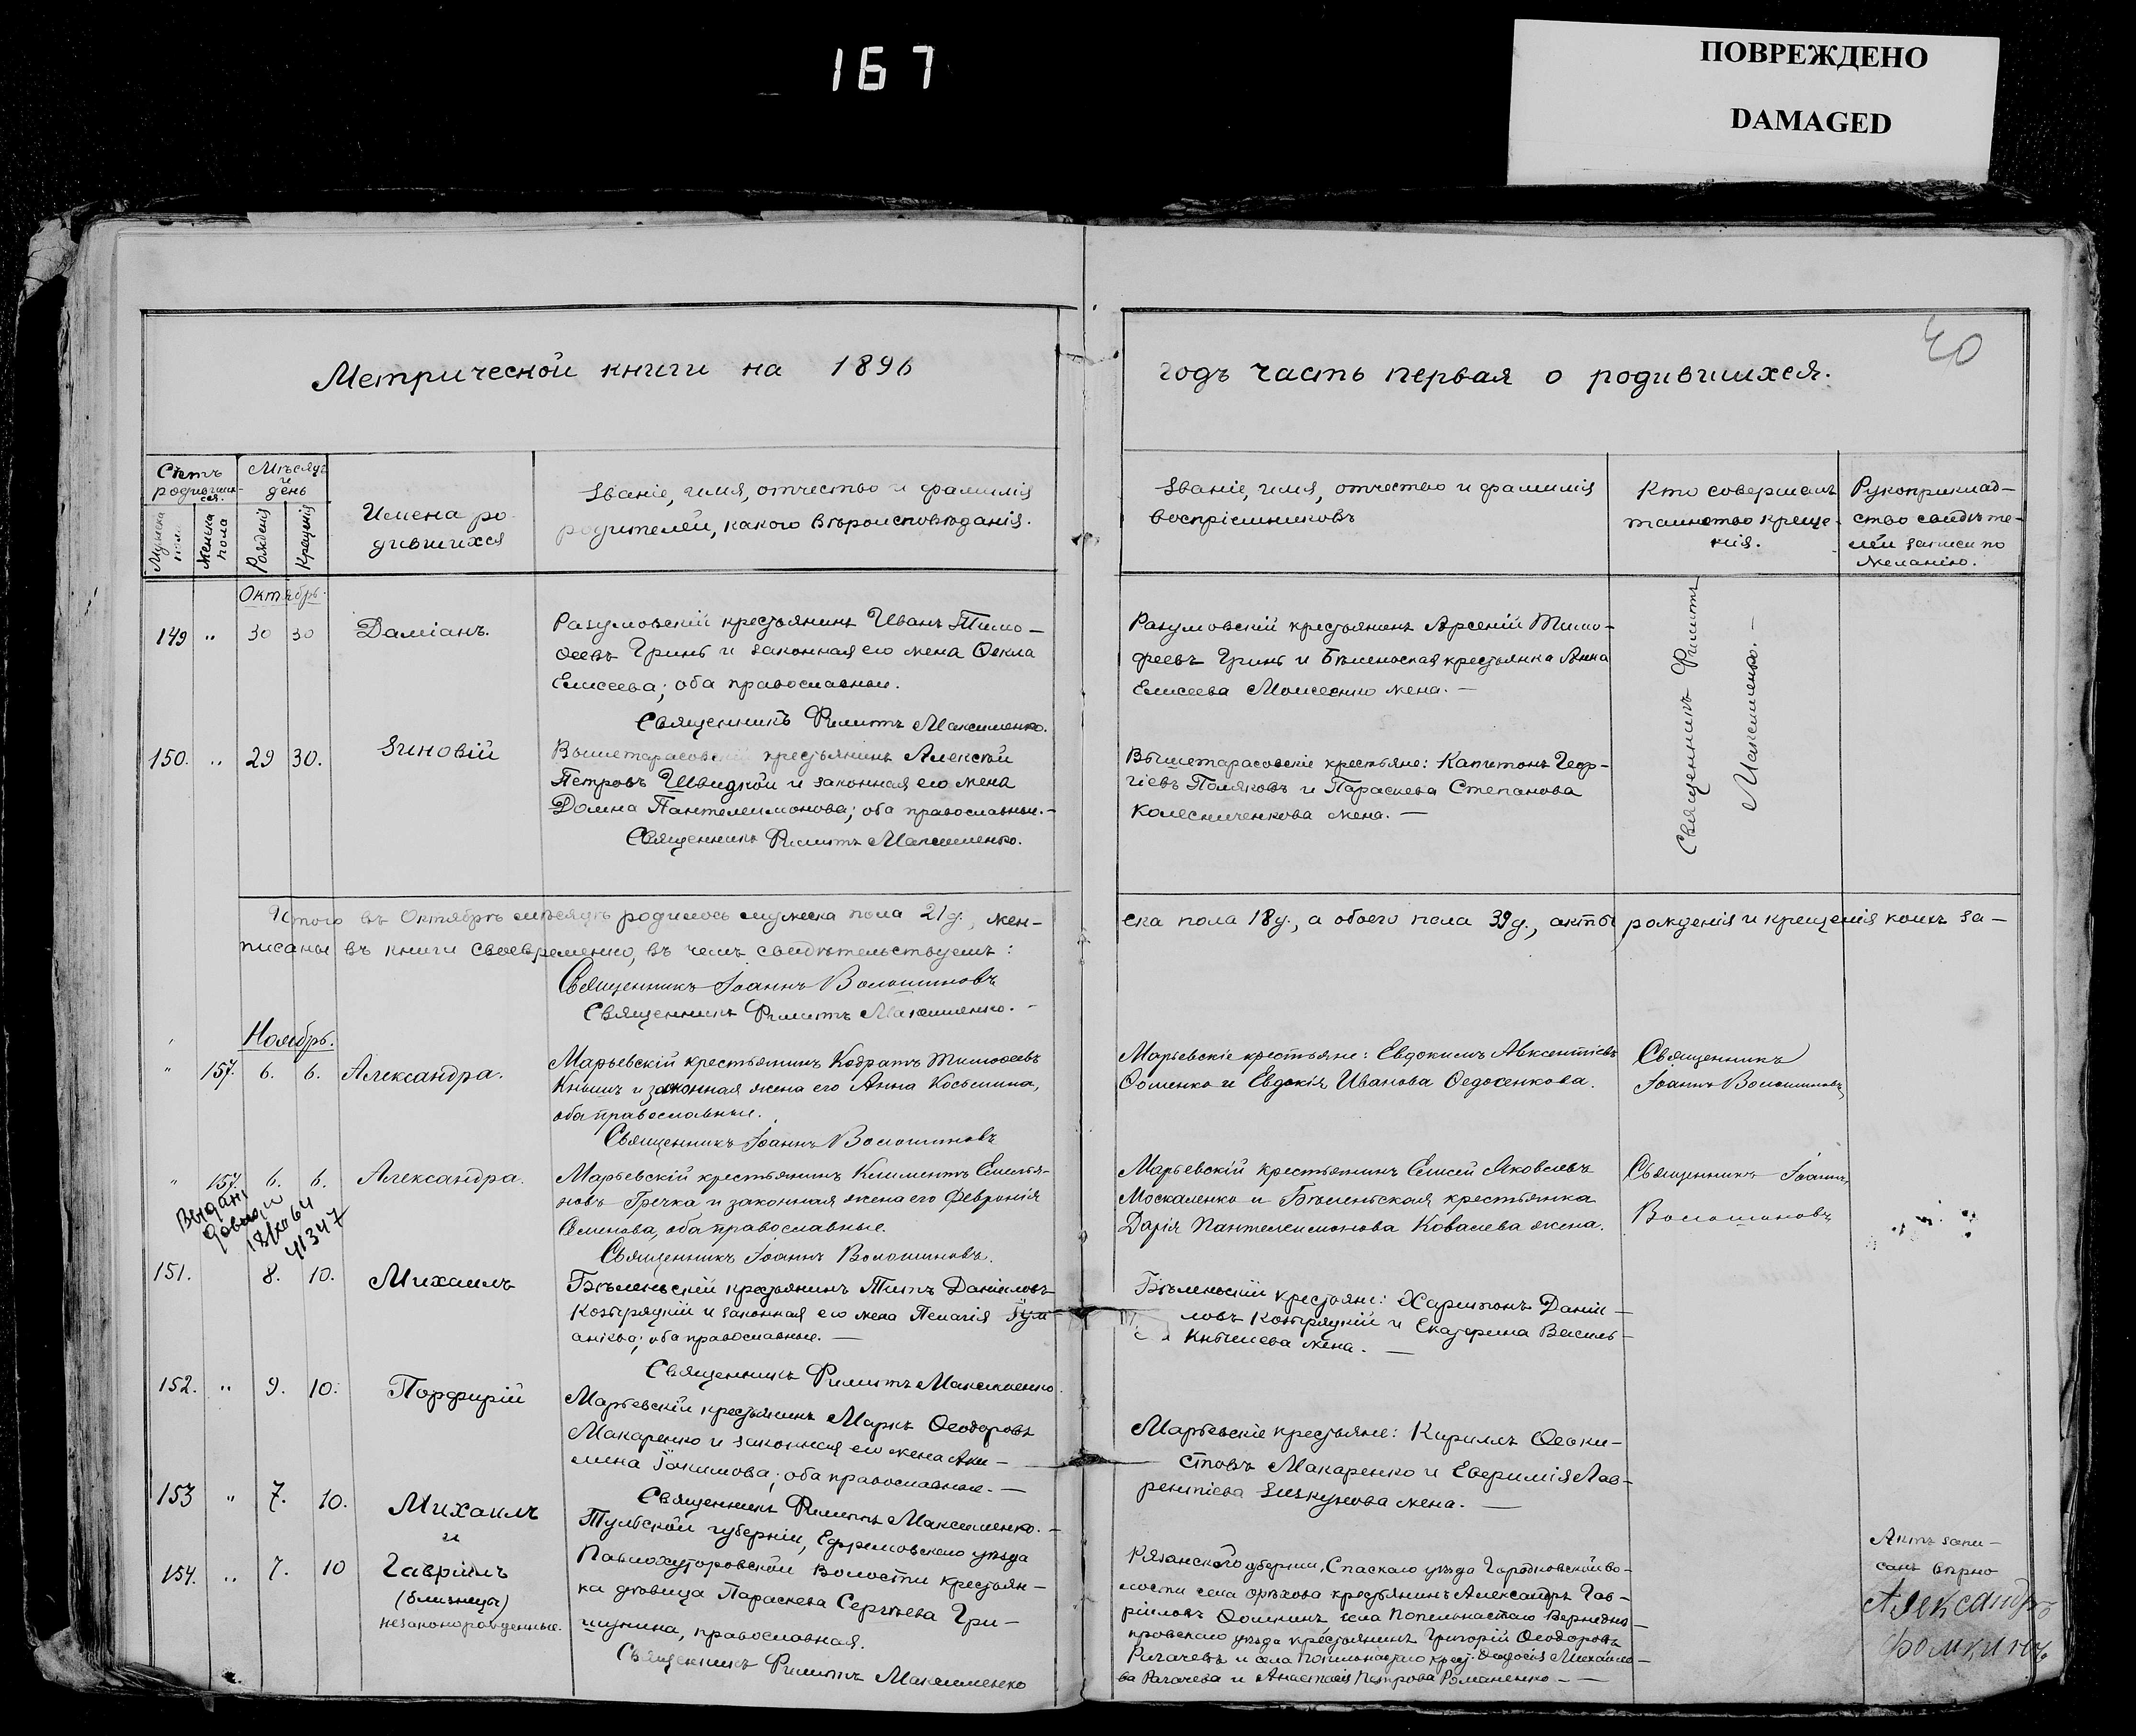 167
ПОВРЕЖДЕНО
DAMAGED
40
Метрической книги на 1896
годъ часть первая о родившихся.
Счетъ родившихся.
Мужска пола
Женска пола
Мѣсяцъ и день
Рожденія
Крещенія
Имена родившихся
Званіе, имя, отчество и фамилія
родителей, какого вѣроисповѣданія.
Званіе, имя, отчество и фамилія
воспріемниковъ
Кто совершалъ
таинство креще-
нія.
Рукоприклад-
ство свидѣте-
лей записи по
желанію.
Октябрь.
149 " 30 30 Даміанъ.
Разумовскій крестьянинъ Иванъ Тимо-
ѳеевъ Гринь и законная его жена Ѳекла
Елисеева; оба православные.
Священникъ Филиппъ Максименко.
Разумовскій крестьянинъ Арсеній Тимо-
феевъ Гринь и Бѣленьская крестьянка Анна
Елисеева Моисеенко жена. —
Священникъ Филиппъ
Максименко. —
150. " 29 30. Зиновій
Вышетарасовскій крестьянинъ Алексѣй
Петровъ Швидкой и законная его жена
Домна Пантелеимонова; оба православные. —
Священникъ Филиппъ Максименко.
Вышетарасовскіе крестьяне: Капитонъ Геор-
гіевъ Поляковъ и Параскева Степанова
Колесниченкова жена. —
Итого въ Октябрѣ мѣсяцѣ родилось мужеска пола 21 д., жен-
ска пола 18 д., а обоего пола 39 д., акты рожденія и крещенія коихъ за-
писаны въ книги своевременно, въ чемъ свидѣтельствуемъ:
Священникъ Іоаннъ Волошиновъ
Священникъ Филиппъ Максименко. —
Ноябрь.
" 157. 6. 6. Александра.
Марьевскій крестьянинъ Кодратъ Тимоѳеевъ
Кнышъ и законная жена его Анна Косьмина,
оба православные.
Священникъ Іоаннъ Волошиновъ
Марьевскіе крестьяне: Евдокимъ Авксентіевъ
Ѳоменко и Евдокія Иванова Ѳедосенкова.
Священникъ
Іоаннъ Волошиновъ
" 157. 6. 6. Александра.
Марьевскій крестьянинъ Климентъ Емелья-
новъ Гречка и законная жена его Февронія
Семенова, оба православные.
Священникъ Іоаннъ Волошиновъ.
Марьевскій крестьянинъ Елисей Яковлевъ
Москаленко и Бѣленьская крестьянка
Дарія Пантелеимонова Ковалева жена.
Священникъ Іоаннъ
Волошиновъ
Выдан
41347
151. 8. 10. Михаилъ
Бѣленьскій крестьянинъ Титъ Даніиловъ
Козыряцкій и законная его жена Пелагія
аніева; оба православные. —
Священникъ Филиппъ Максименко.
Бѣленьскіе крестьяне: Харитонъ Даніи-
ловъ Козыряцкій и Екатерина Василь-
Кнышева жена. —
152. " 9. 10. Порфирій
Марьевскій крестьянинъ Маркъ Ѳеодоровъ
Макаренко и законная его жена Аки-
лина Іоакимова; оба православные. —
Священникъ Филиппъ Максименко. —
Марьевскіе крестьяне: Кириллъ Ѳеоки-
стовъ Макаренко и Евфимія Лав-
рентіева жена. —
153 " 7. 10. Михаилъ
и
154. " 7. 10 Гавріилъ
(близнецы)
незаконорожденные.
Тульской губерніи, Ефремовскаго уѣзда
Павлохуторовской волости крестьян-
ка дѣвица Параскева Сергѣева Гри-
шунина, православная.
Священникъ Филиппъ Максименко
Рязанской губерніи, Спаскаго уѣзда Городковской во-
лости села Орѣхова крестьянинъ Александръ Гав-
ріиловъ Ѳомкинъ, села Попельнастаго Верхнедне-
провскаго уѣзда крестьянинъ Григорій Ѳеодоровъ
Рагачевъ и села Попельнастаго крест. Ѳеодосія Михайло-
ва Рагачева и Анастасія Петрова Романенко —
Актъ запи-
санъ вѣрно
Александръ
Фомкинъ